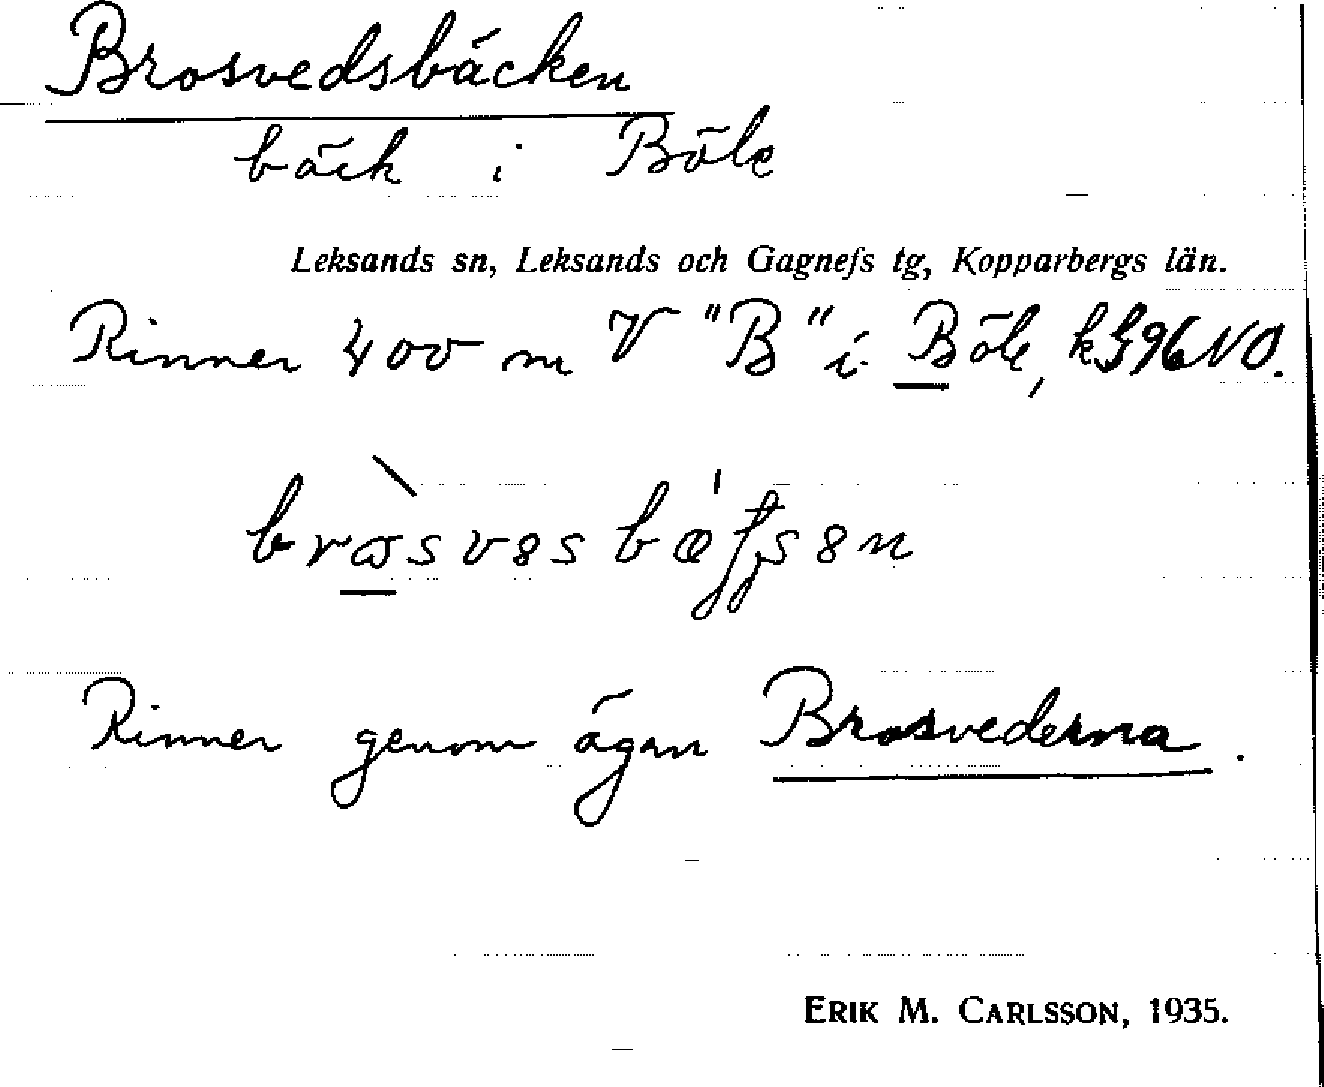 Brosvedsbäcken
bäck i Böle
Leksands sn, Leksands och Gagnefs tg, Kopparbergs län.
Rinner 400 m V "B" i Böle, kg 96 NO.
Rinner genom ägan Brosvederna.
ERIK M. CARLSSON, 1935.